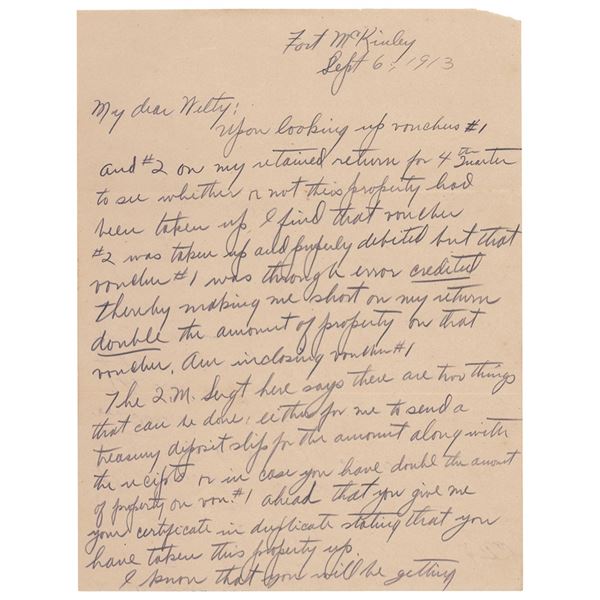 Fort McKinley
Sept 6, 1913
My dear Welty;
Upon looking up vouchers #1
and #2 on my retained return for 4th Quarter
to see whether or not this property had
been taken up I find that voucher
#2 was taken up and properly debited but that
voucher #1 was through error credited
thereby making me short on my return
double the amount of property on that
voucher. Am inclosing voucher #1
The Q.M. Sergt here says there are two things
that can be done; either for me to send a
treasury deposit slip for the amount along with
the recipts or in case you have double the amount
of property on vou. #1 ahead that you give me
your certificate in duplicate stating that you
have taken this property up.
I know that you will be getting